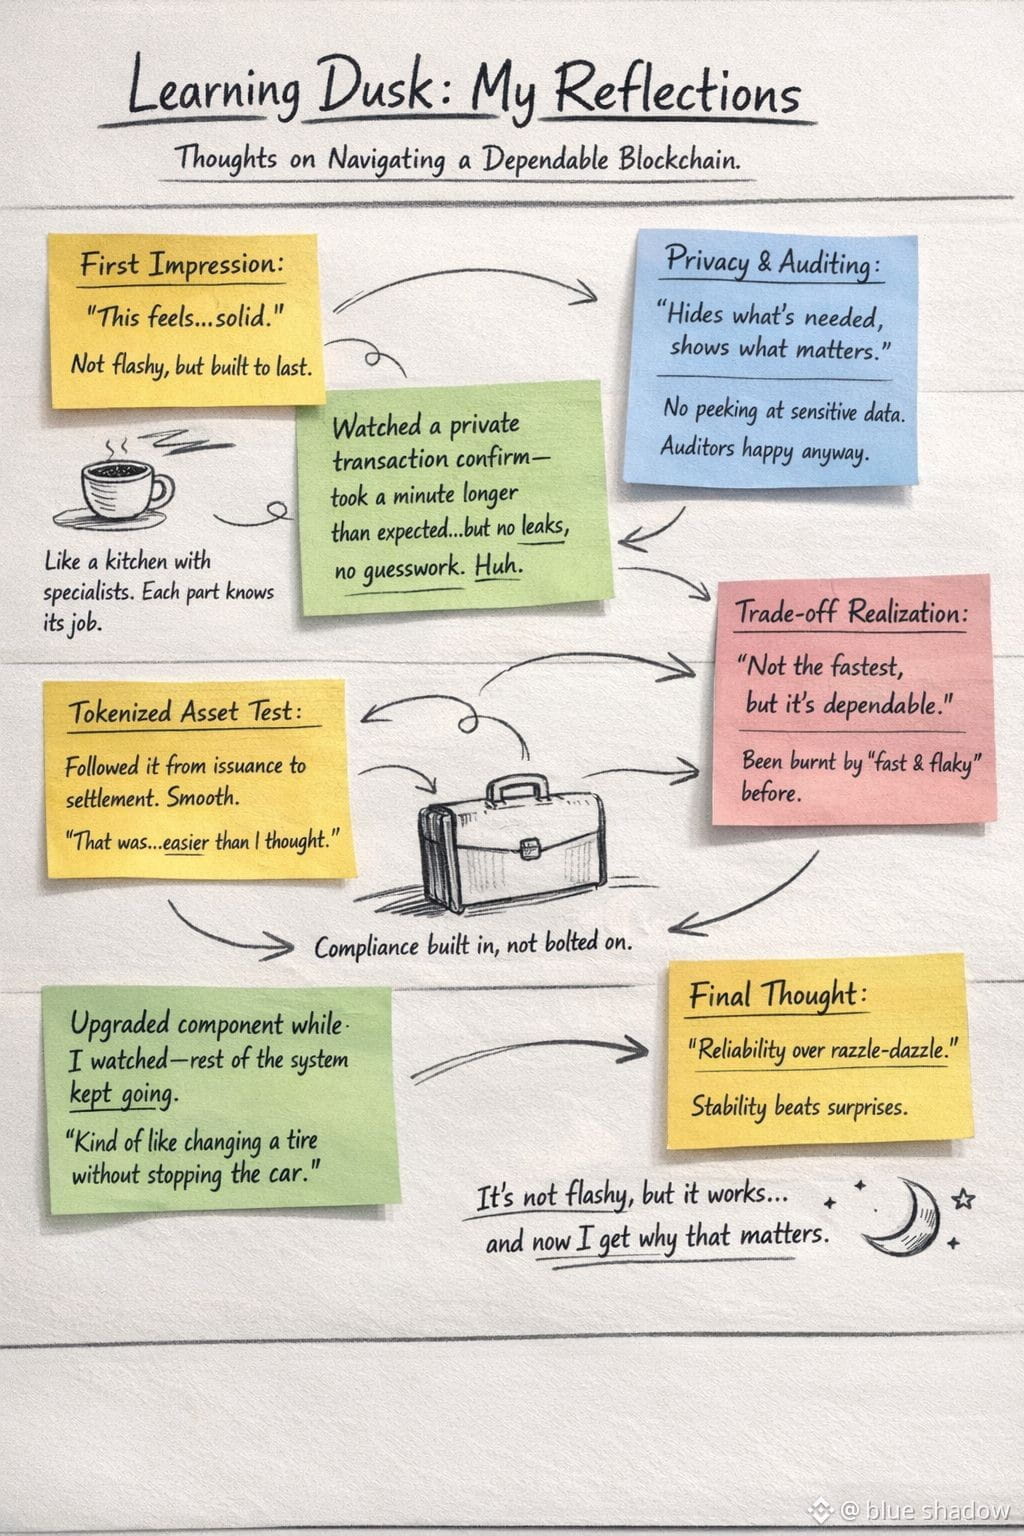 Learning Dusk: My Reflections
Thoughts on Navigating a Dependable Blockchain.
First Impression:
"This feels...solid."
Not flashy, but built to last.
Privacy & Auditing:
"Hides what's needed,
shows what matters."
No peeking at sensitive data.
Auditors happy anyway.
Watched a private
transaction confirm—
took a minute longer
than expected...but no leaks,
no guesswork. Huh.
Like a kitchen with
specialists. Each part knows
its job.
Trade-off Realization:
"Not the fastest,
but it's dependable."
Been burnt by "fast & flaky"
before.
Tokenized Asset Test:
Followed it from issuance to
settlement. Smooth.
"That was...easier than I thought."
Compliance built in, not bolted on.
Upgraded component while
I watched—rest of the system
kept going.
"Kind of like changing a tire
without stopping the car."
Final Thought:
"Reliability over razzle-dazzle."
Stability beats surprises.
It's not flashy, but it works...
and now I get why that matters.
@ blue shadow